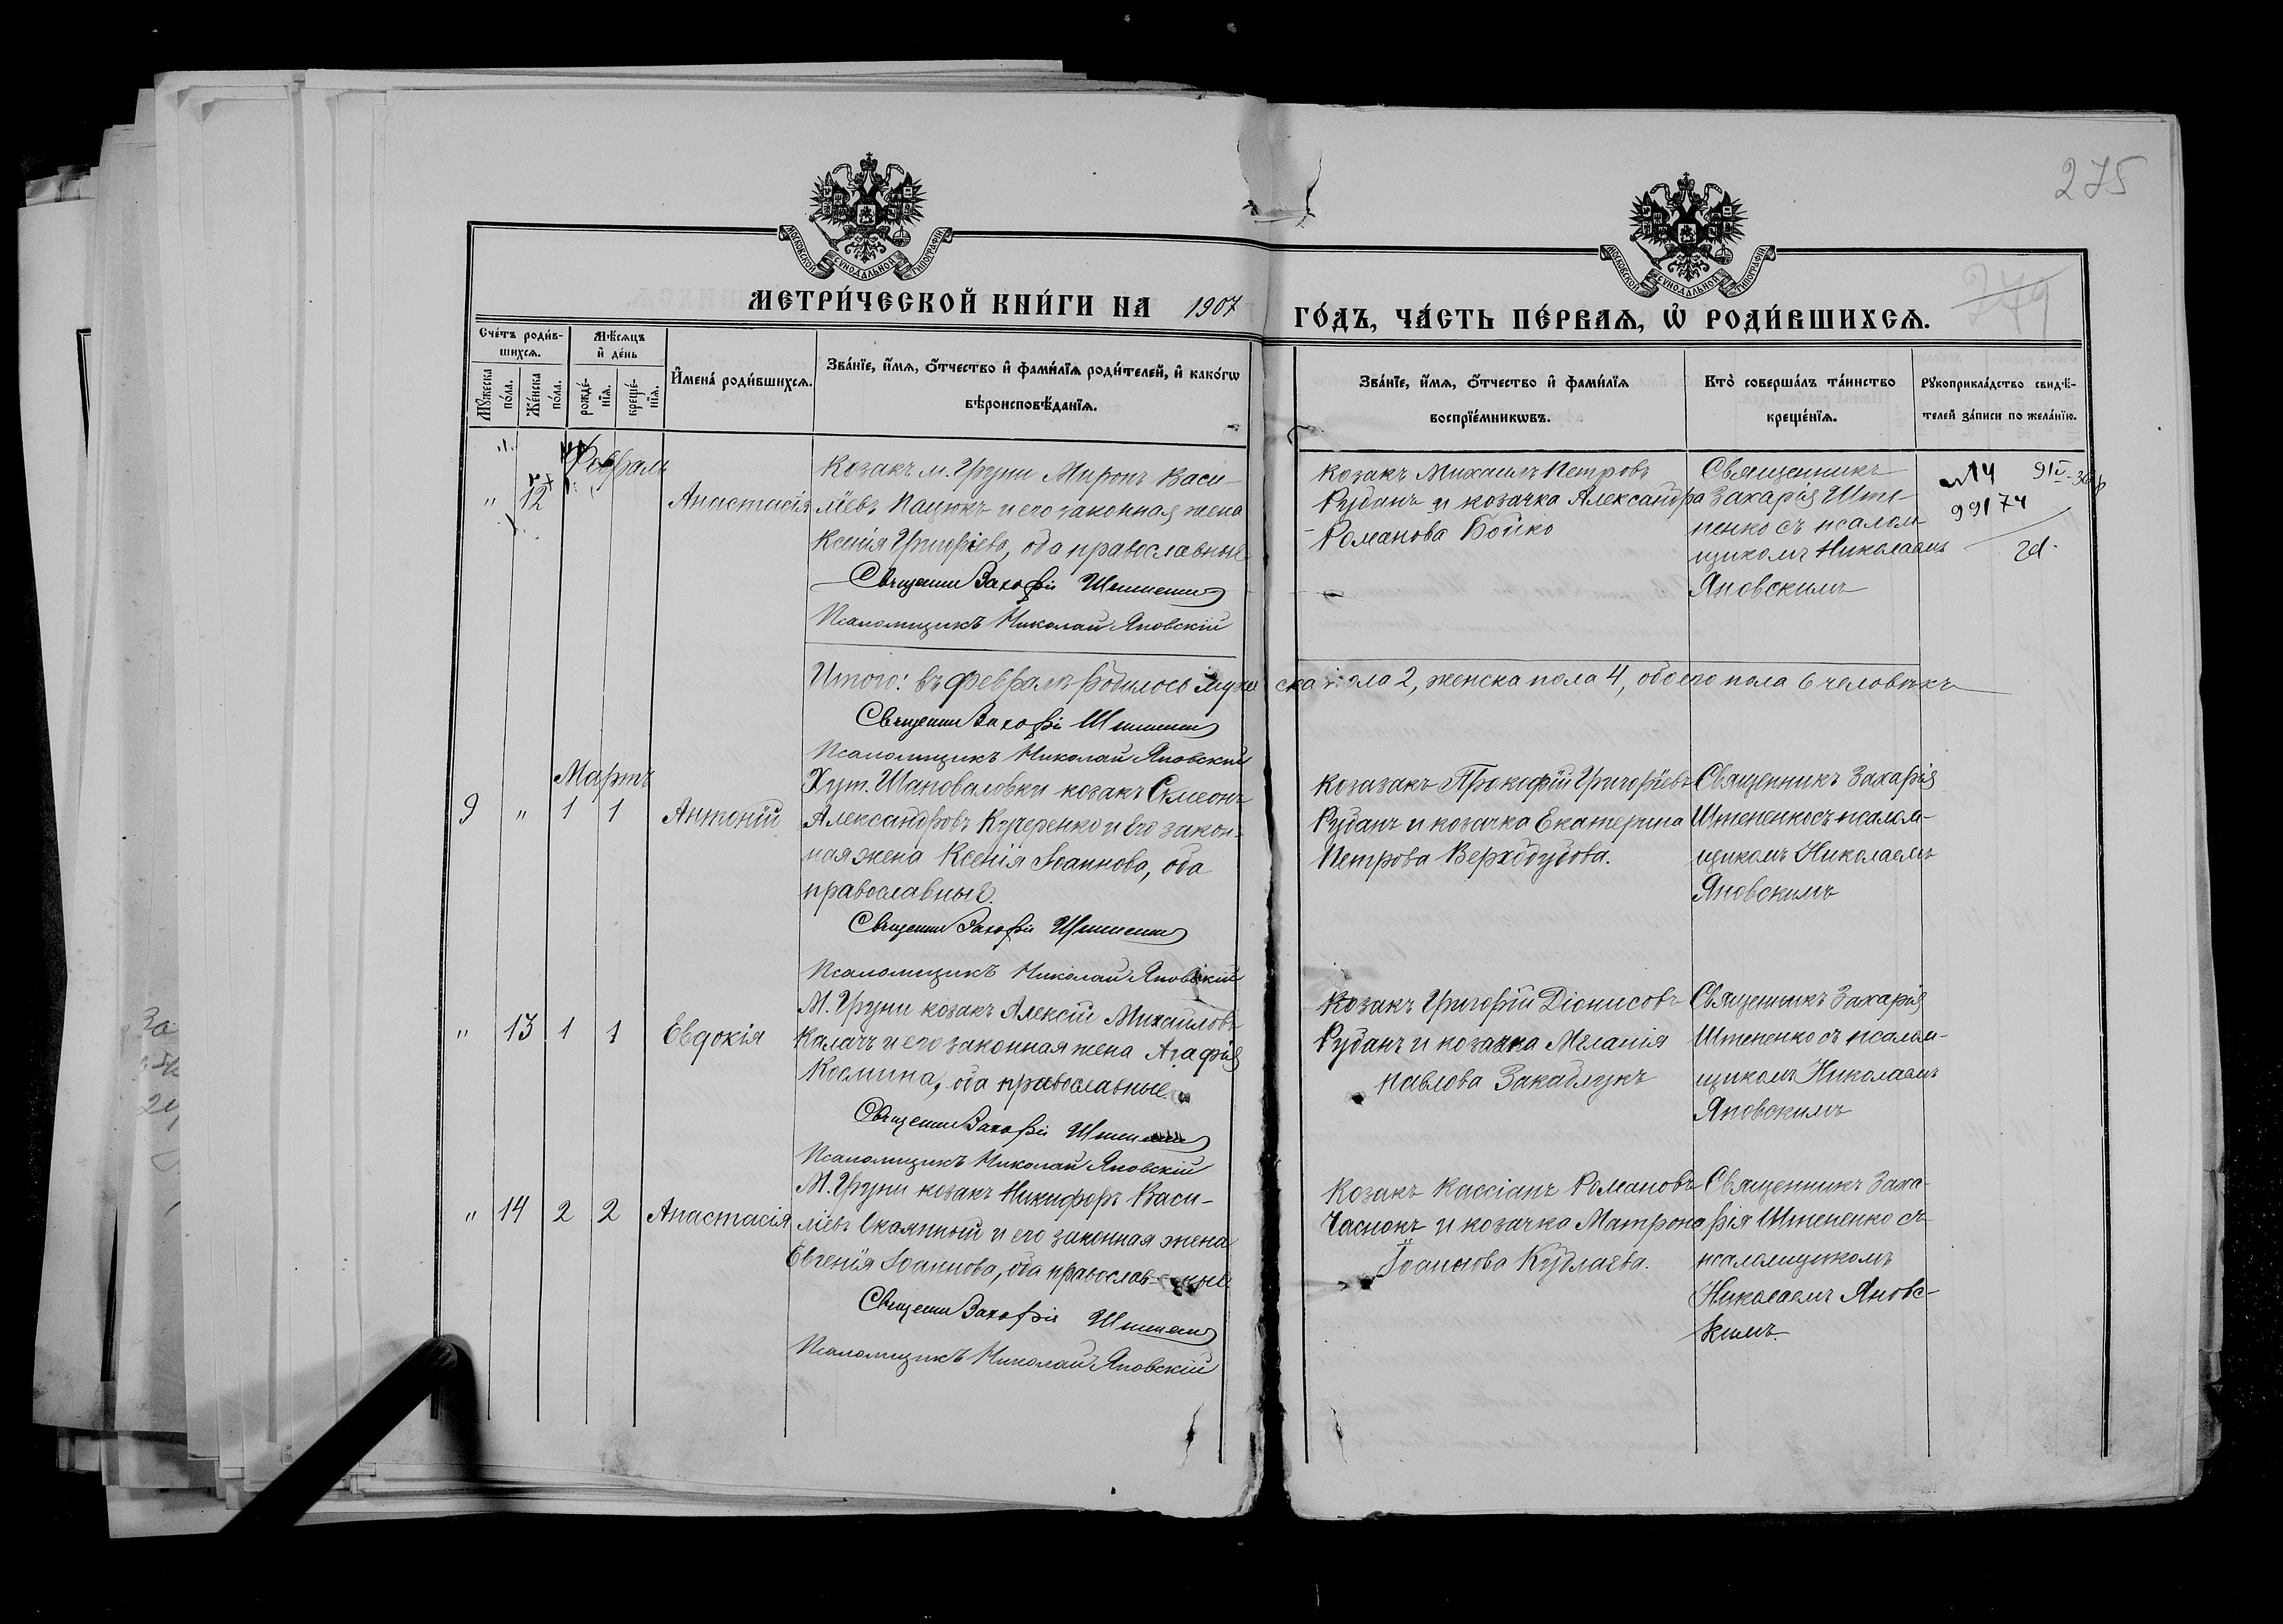 275
279
МОСКОВСКОЙ СУНОДАЛЬНОЙ ТИПОГРАФІИ
МОСКОВСКОЙ СУНОДАЛЬНОЙ ТИПОГРАФІИ
МЕТРИ́ЧЕСКОЙ КНИ́ГИ НА 1907 ГО́ДЪ, ЧА́СТЬ ПЕ́РВАЯ, Ѡ РОДИ́ВШИХСЯ.
Сче́тъ роди́в-
шихся.
Мѣ́сяцъ
и де́нь
Мꙋ́жеска
по́ла.
Же́нска
по́ла.
рожде́-
нїя.
креще́-
нїя.
Имена́ роди́вшихся.
Зва́нїе, и́мя, о́тчество и фами́лїя роди́телей, и како́гѡ
вѣроисповѣ́данїя.
Зва́нїе, и́мя, о́тчество и фами́лїя
воспрїе́мникѡвъ.
Кто̀ соверша́лъ та́инство
креще́нїя.
Рꙋкоприкла́дство свидѣ́-
телей за́писи по жела́нїю.
Февраль
" 12
Анастасія
Козакъ м. Груни Миронъ Васи-
ліевъ Пацюкъ и его законная жена
Ксенія Григоріева, оба православные
Священни Захарій Штепенко
Псаломщикъ Николай Яновскій
Козакъ Михаилъ Петровъ
Рубанъ и козачка Александра
Романова Бойко
Священникъ
Захарія Ште-
пенко съ псалом-
щикомъ Николаемъ
Яновскимъ
99174
Итого: въ февралѣ родилось мужеска пола 2, женска пола 4, обоего пола 6 человѣкъ
Священни Захарій Штепенко
Псаломщикъ Николай Яновский
Мартъ
9 " 1 1 Антоній
Хут. Шаповаловки козакъ Симеонъ
Александровъ Кучеренко и его закон-
ная жена Ксенія Іоаннова, оба
православные.
Священни Захарій Штепенко
Псаломщикъ Николай Яновскій
Козазакъ Прокофій Григоріевъ
Рубанъ и козачка Екатерина
Петрова Верходубова.
Священникъ Захарія
Штепенко съ псалом-
щикомъ Николаемъ
Яновскимъ
" 13 1 1 Евдокія
М. Груни козакъ Алексій Михаиловъ
Калачъ и его законная жена Агафія
Космина, оба православные.
Священни Захарій Штепенко
Псаломщикъ Николай Яновскій
Козакъ Григорій Діонисовъ
Рубанъ и козачка Меланія
Павлова Закаблукъ
Священникъ Захарія
Штепенко съ псалом-
щикомъ Николаемъ
Яновскимъ
" 14 2 2 Анастасія
М. Груни козакъ Никифоръ Васи-
ліевъ Окаянный и его законная жена
Евгенія Іоаннова, оба православ-ные
Священни Захарій Штепенко
Псаломщикъ Николай Яновскій
Козакъ Кассіанъ Романовъ
Часнокъ и козачка Матрона
Іоаннова Кудлаева.
Священникъ Заха-
рія Штепенко съ
псаломщикомъ
Николаемъ Яновс-
кимъ.